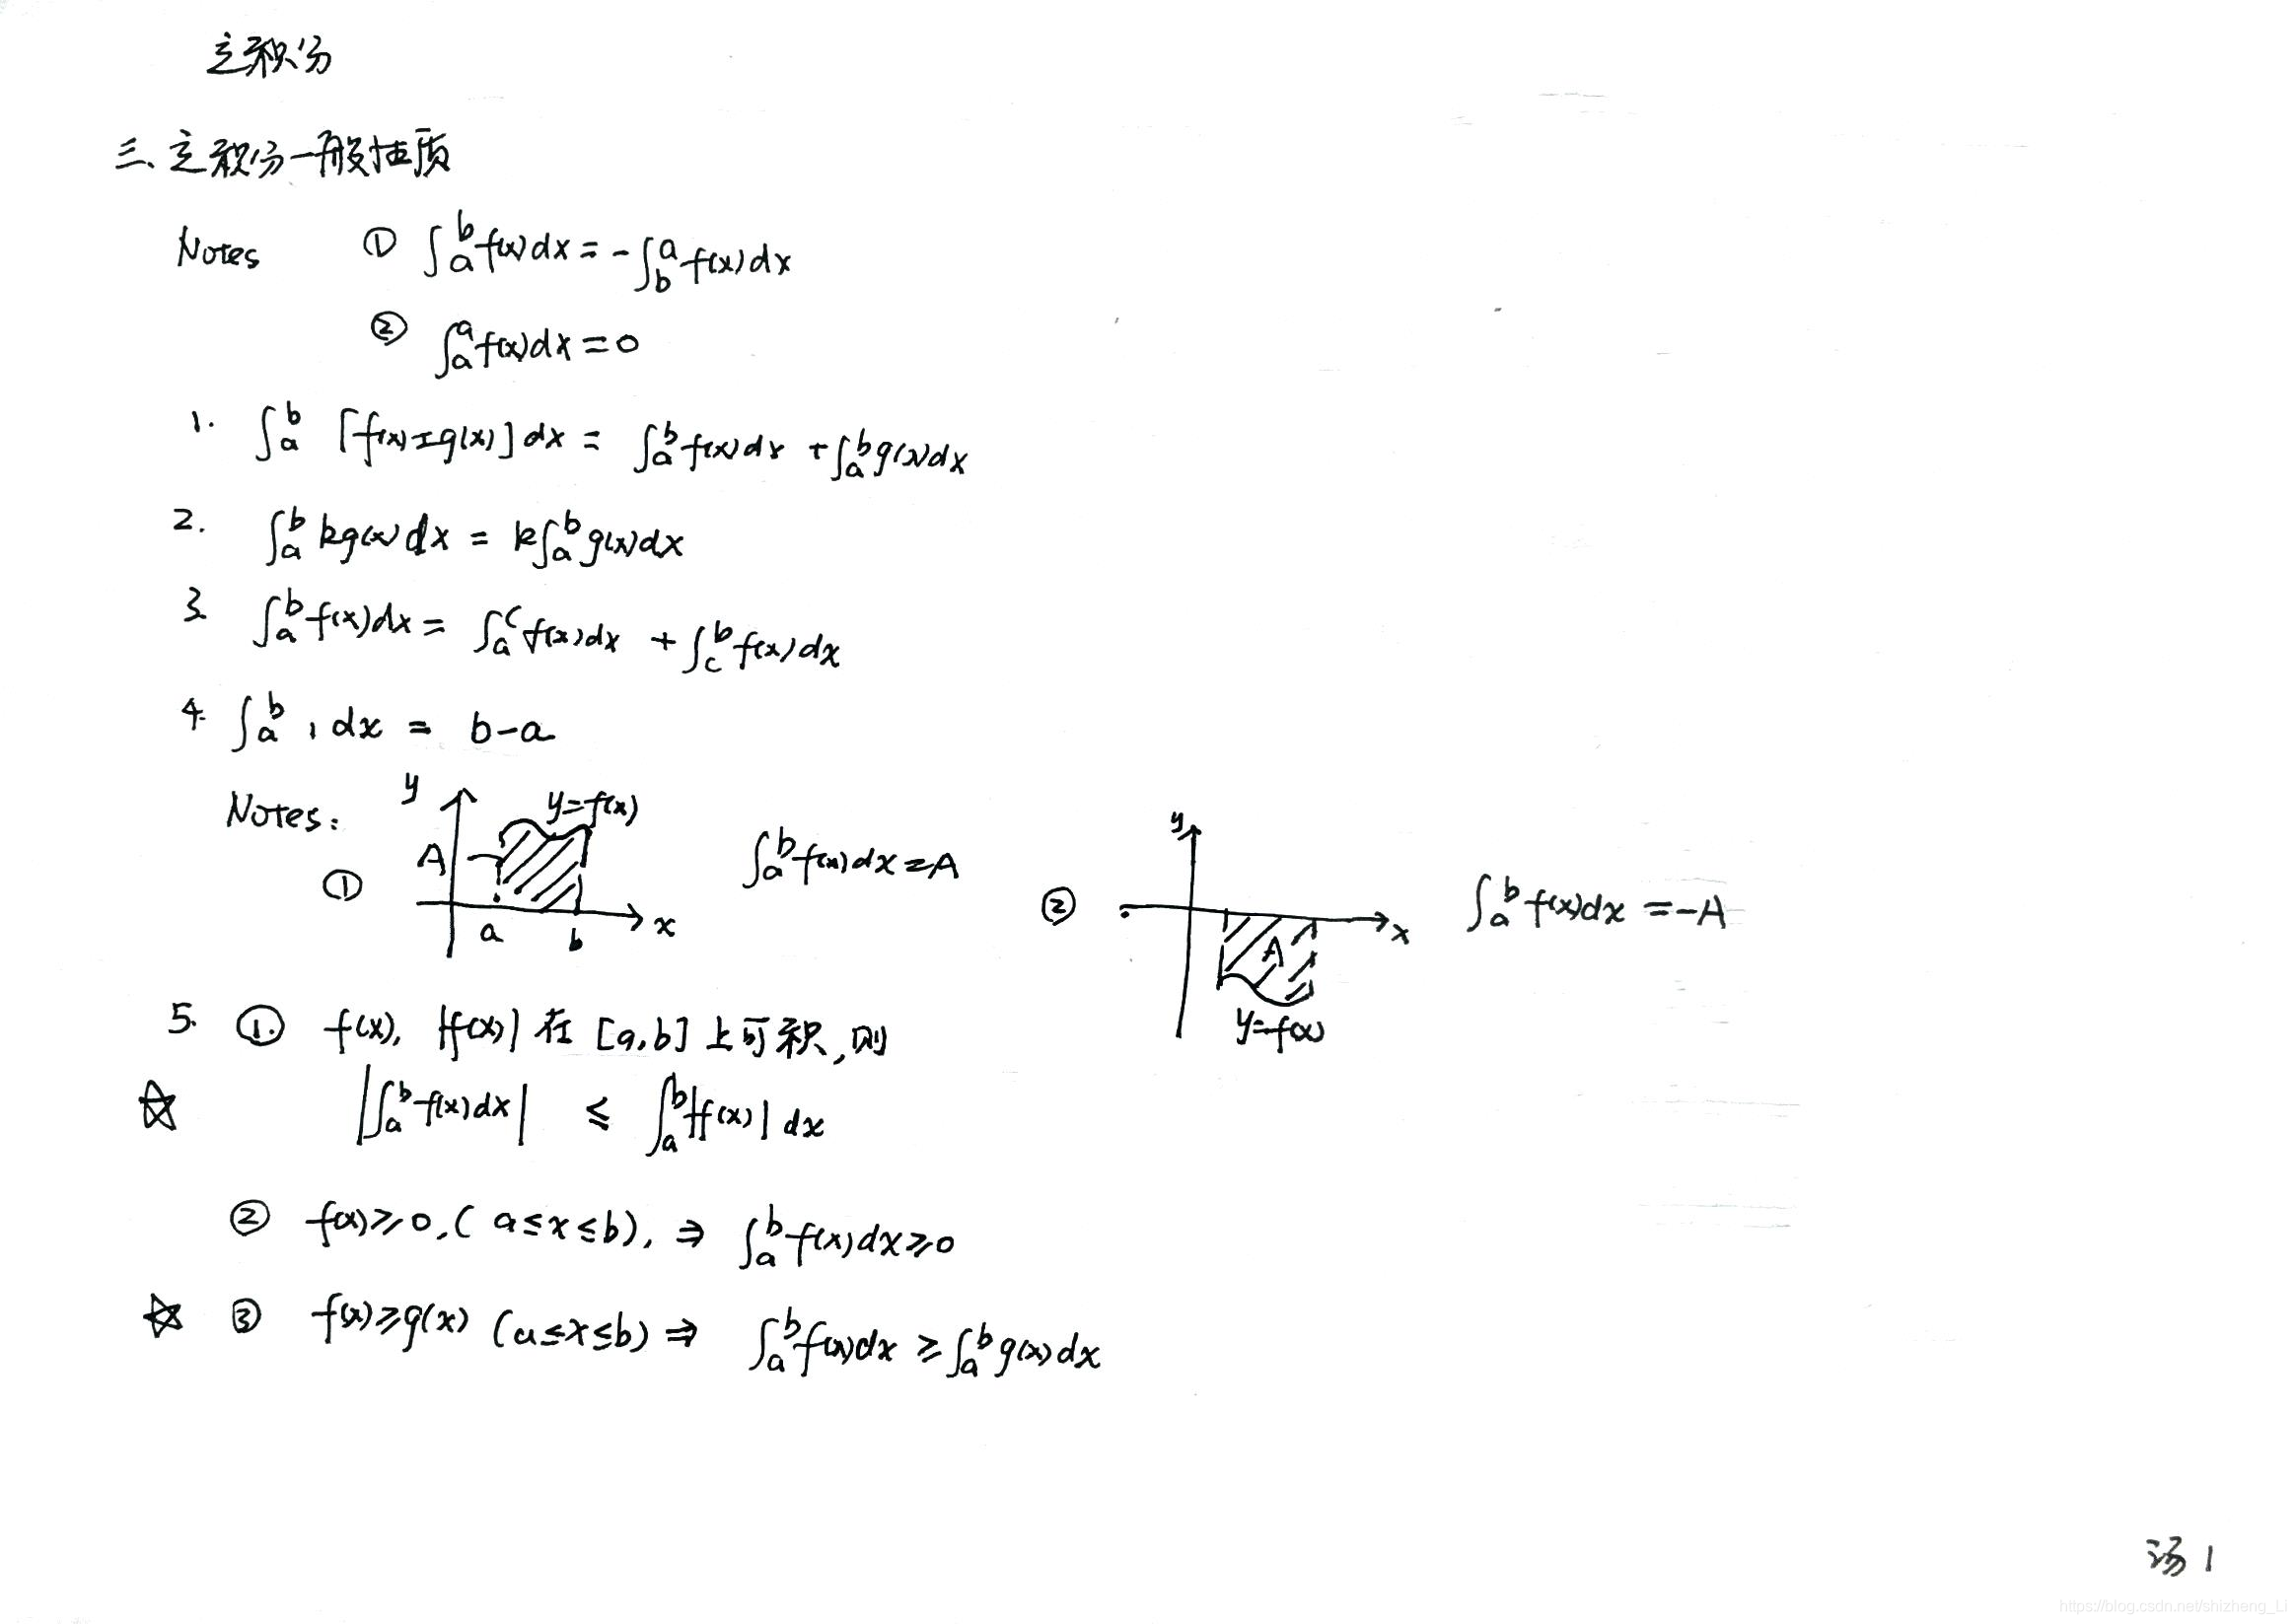 定积分
三、定积分一般性质
Notes ① ∫_a^b f(x)dx = -∫_b^a f(x)dx
② ∫_a^a f(x)dx = 0
1. ∫_a^b [f(x)±g(x)]dx = ∫_a^b f(x)dx + ∫_a^b g(x)dx
2. ∫_a^b kg(x)dx = k∫_a^b g(x)dx
3. ∫_a^b f(x)dx = ∫_a^c f(x)dx + ∫_c^b f(x)dx
4. ∫_a^b 1 dx = b-a
Notes:
① y A y=f(x) a b x ∫_a^b f(x)dx = A
② y x A y=f(x) ∫_a^b f(x)dx = -A
5. ① f(x), |f(x)| 在 [a,b] 上可积,则
☆ |∫_a^b f(x)dx| ≤ ∫_a^b |f(x)| dx
② f(x)≥0, (a≤x≤b), ⇒ ∫_a^b f(x)dx≥0
☆ ③ f(x)≥g(x) (a≤x≤b) ⇒ ∫_a^b f(x)dx ≥ ∫_a^b g(x)dx
汤 1
https://blog.csdn.net/shizheng_Li